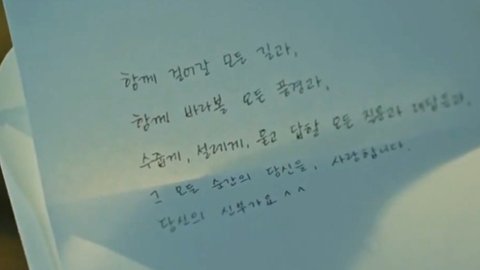 함께 걸어갈 모든 길과,
함께 바라볼 모든 풍경과,
수줍게, 설레게, 묻고 답할 모든 질문과 대답들과,
그 모든 순간의 당신을, 사랑합니다.
당신의 신부가요 ^^